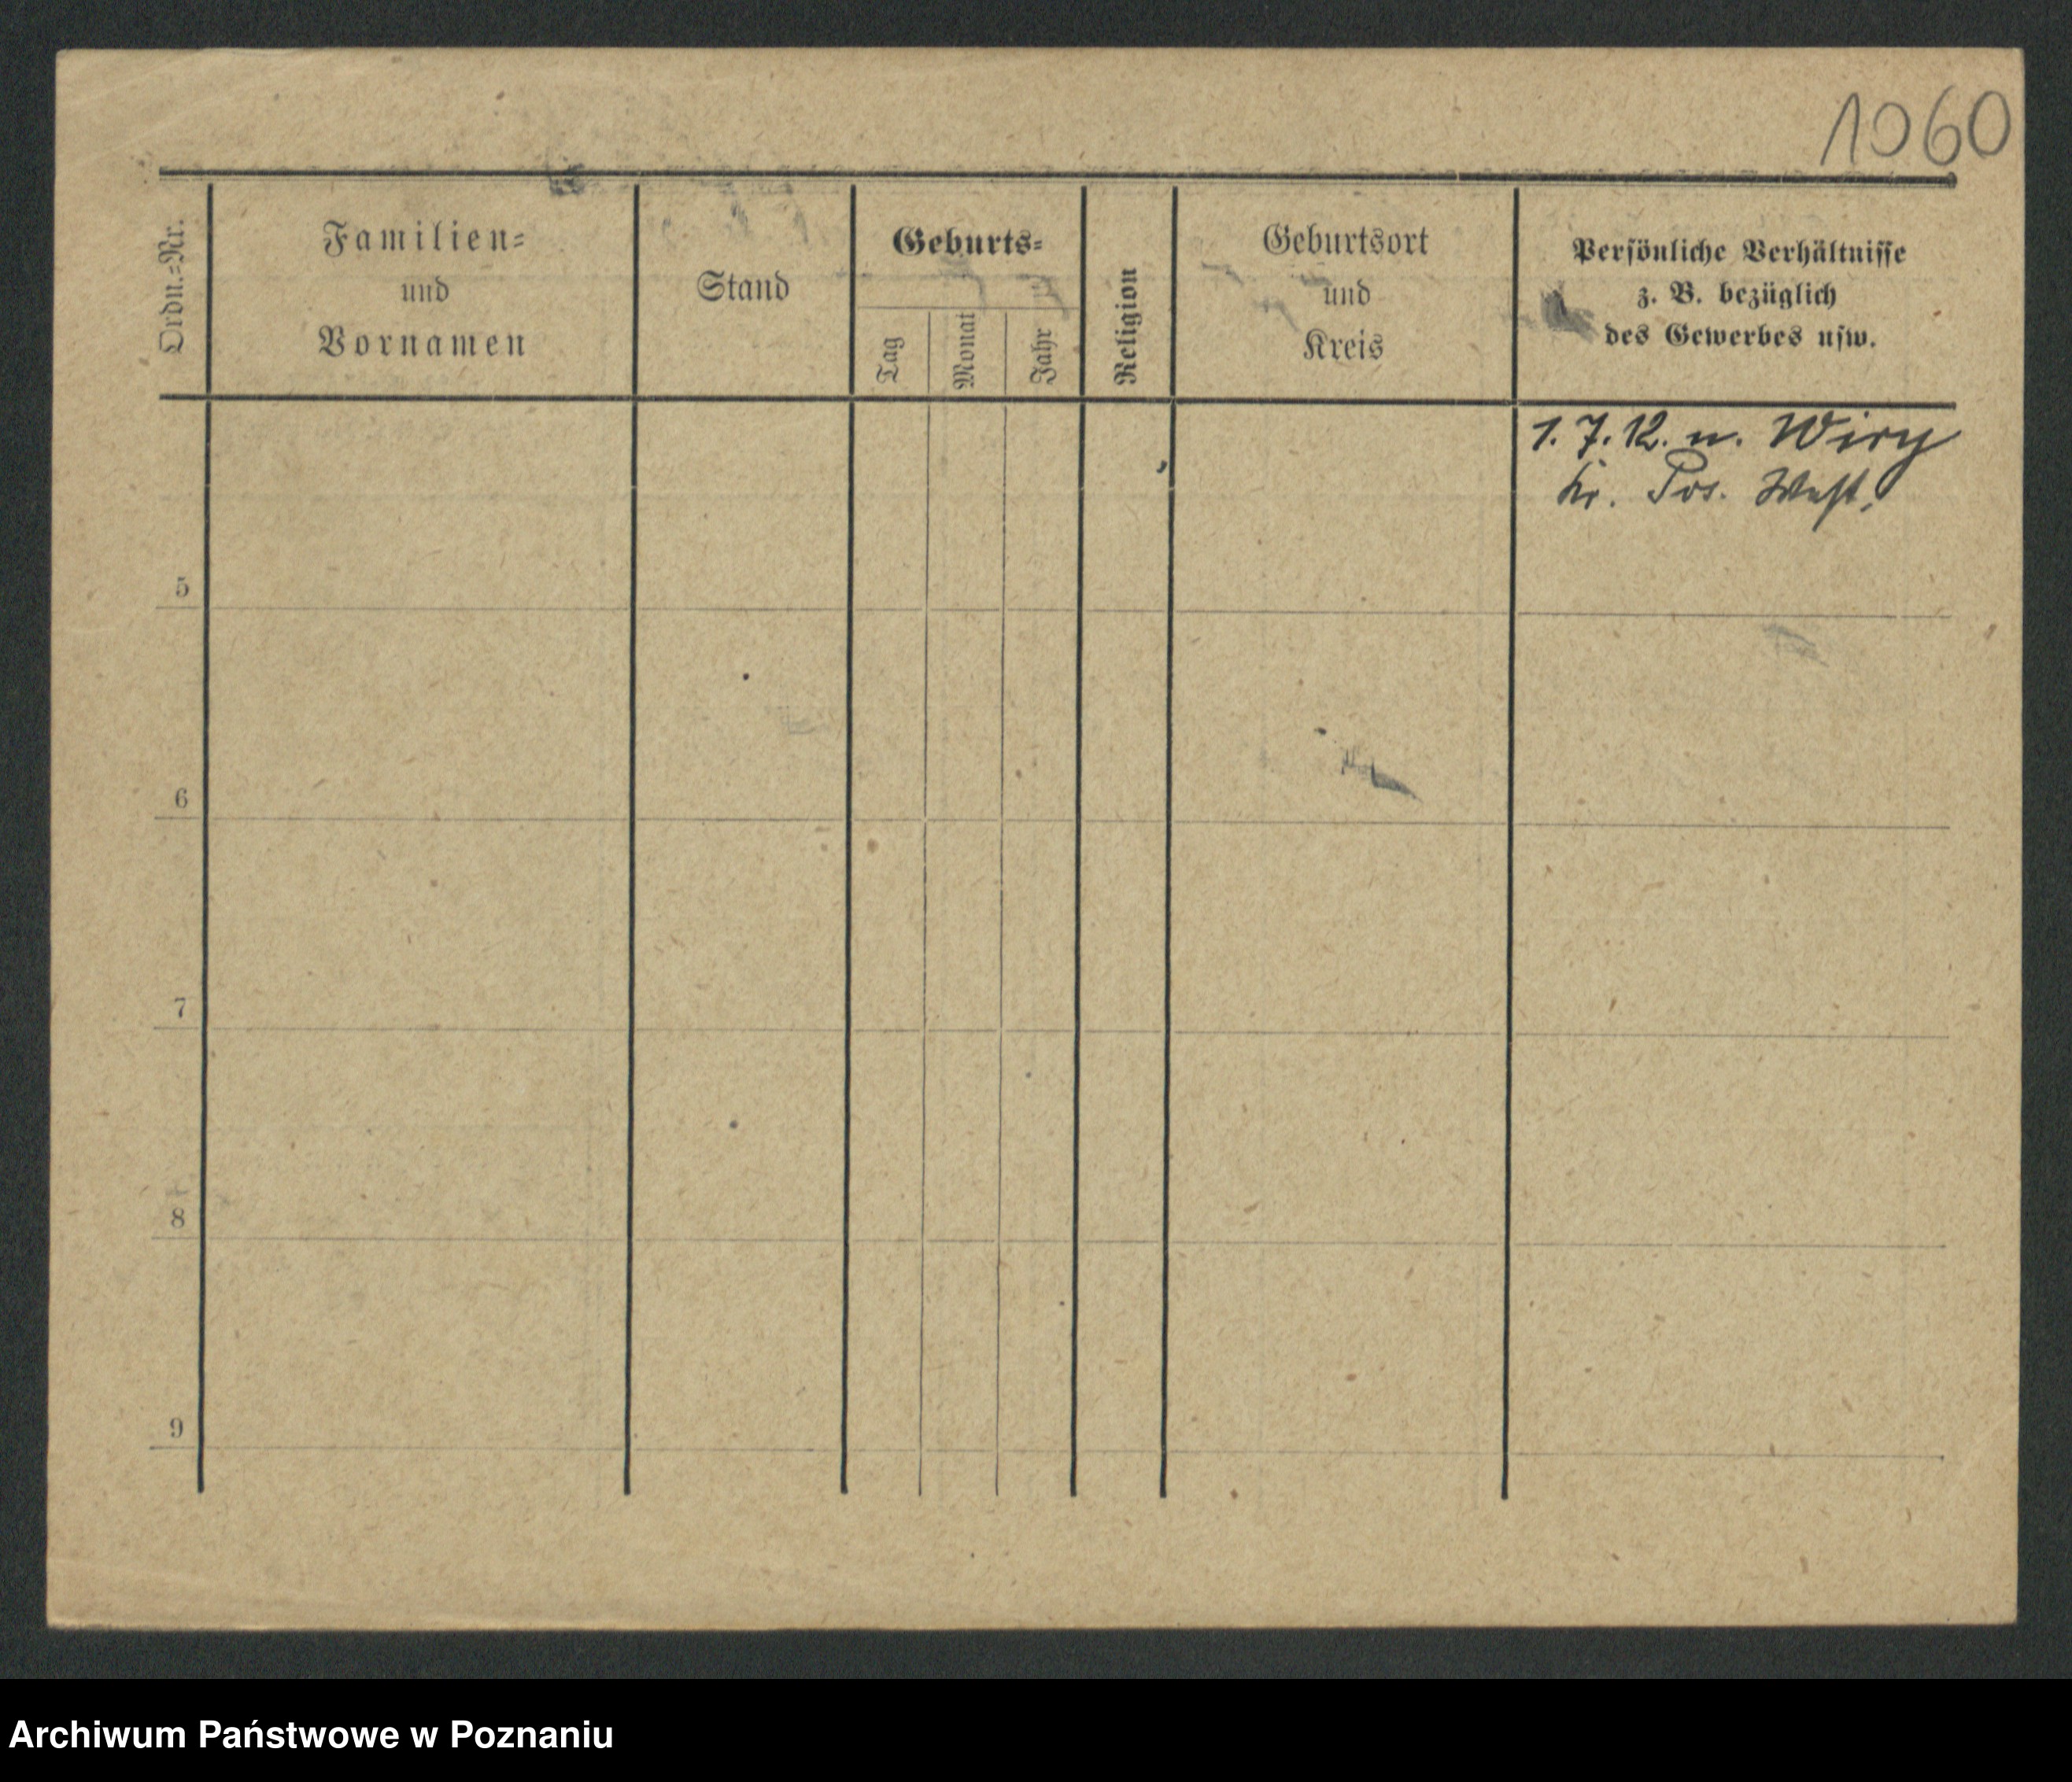 1060
Ordn.=Nr.
Familien=
und
Vornamen
Stand
Geburts=
Tag
Monat
Jahr
Religion
Geburtsort
und
Kreis
Persönliche Verhältnisse
z. B. bezüglich
des Gewerbes usw.
1. 7. 12. n. Wiry
Kr. Pos. West.
5
6
7
8
9
Archiwum Państwowe w Poznaniu